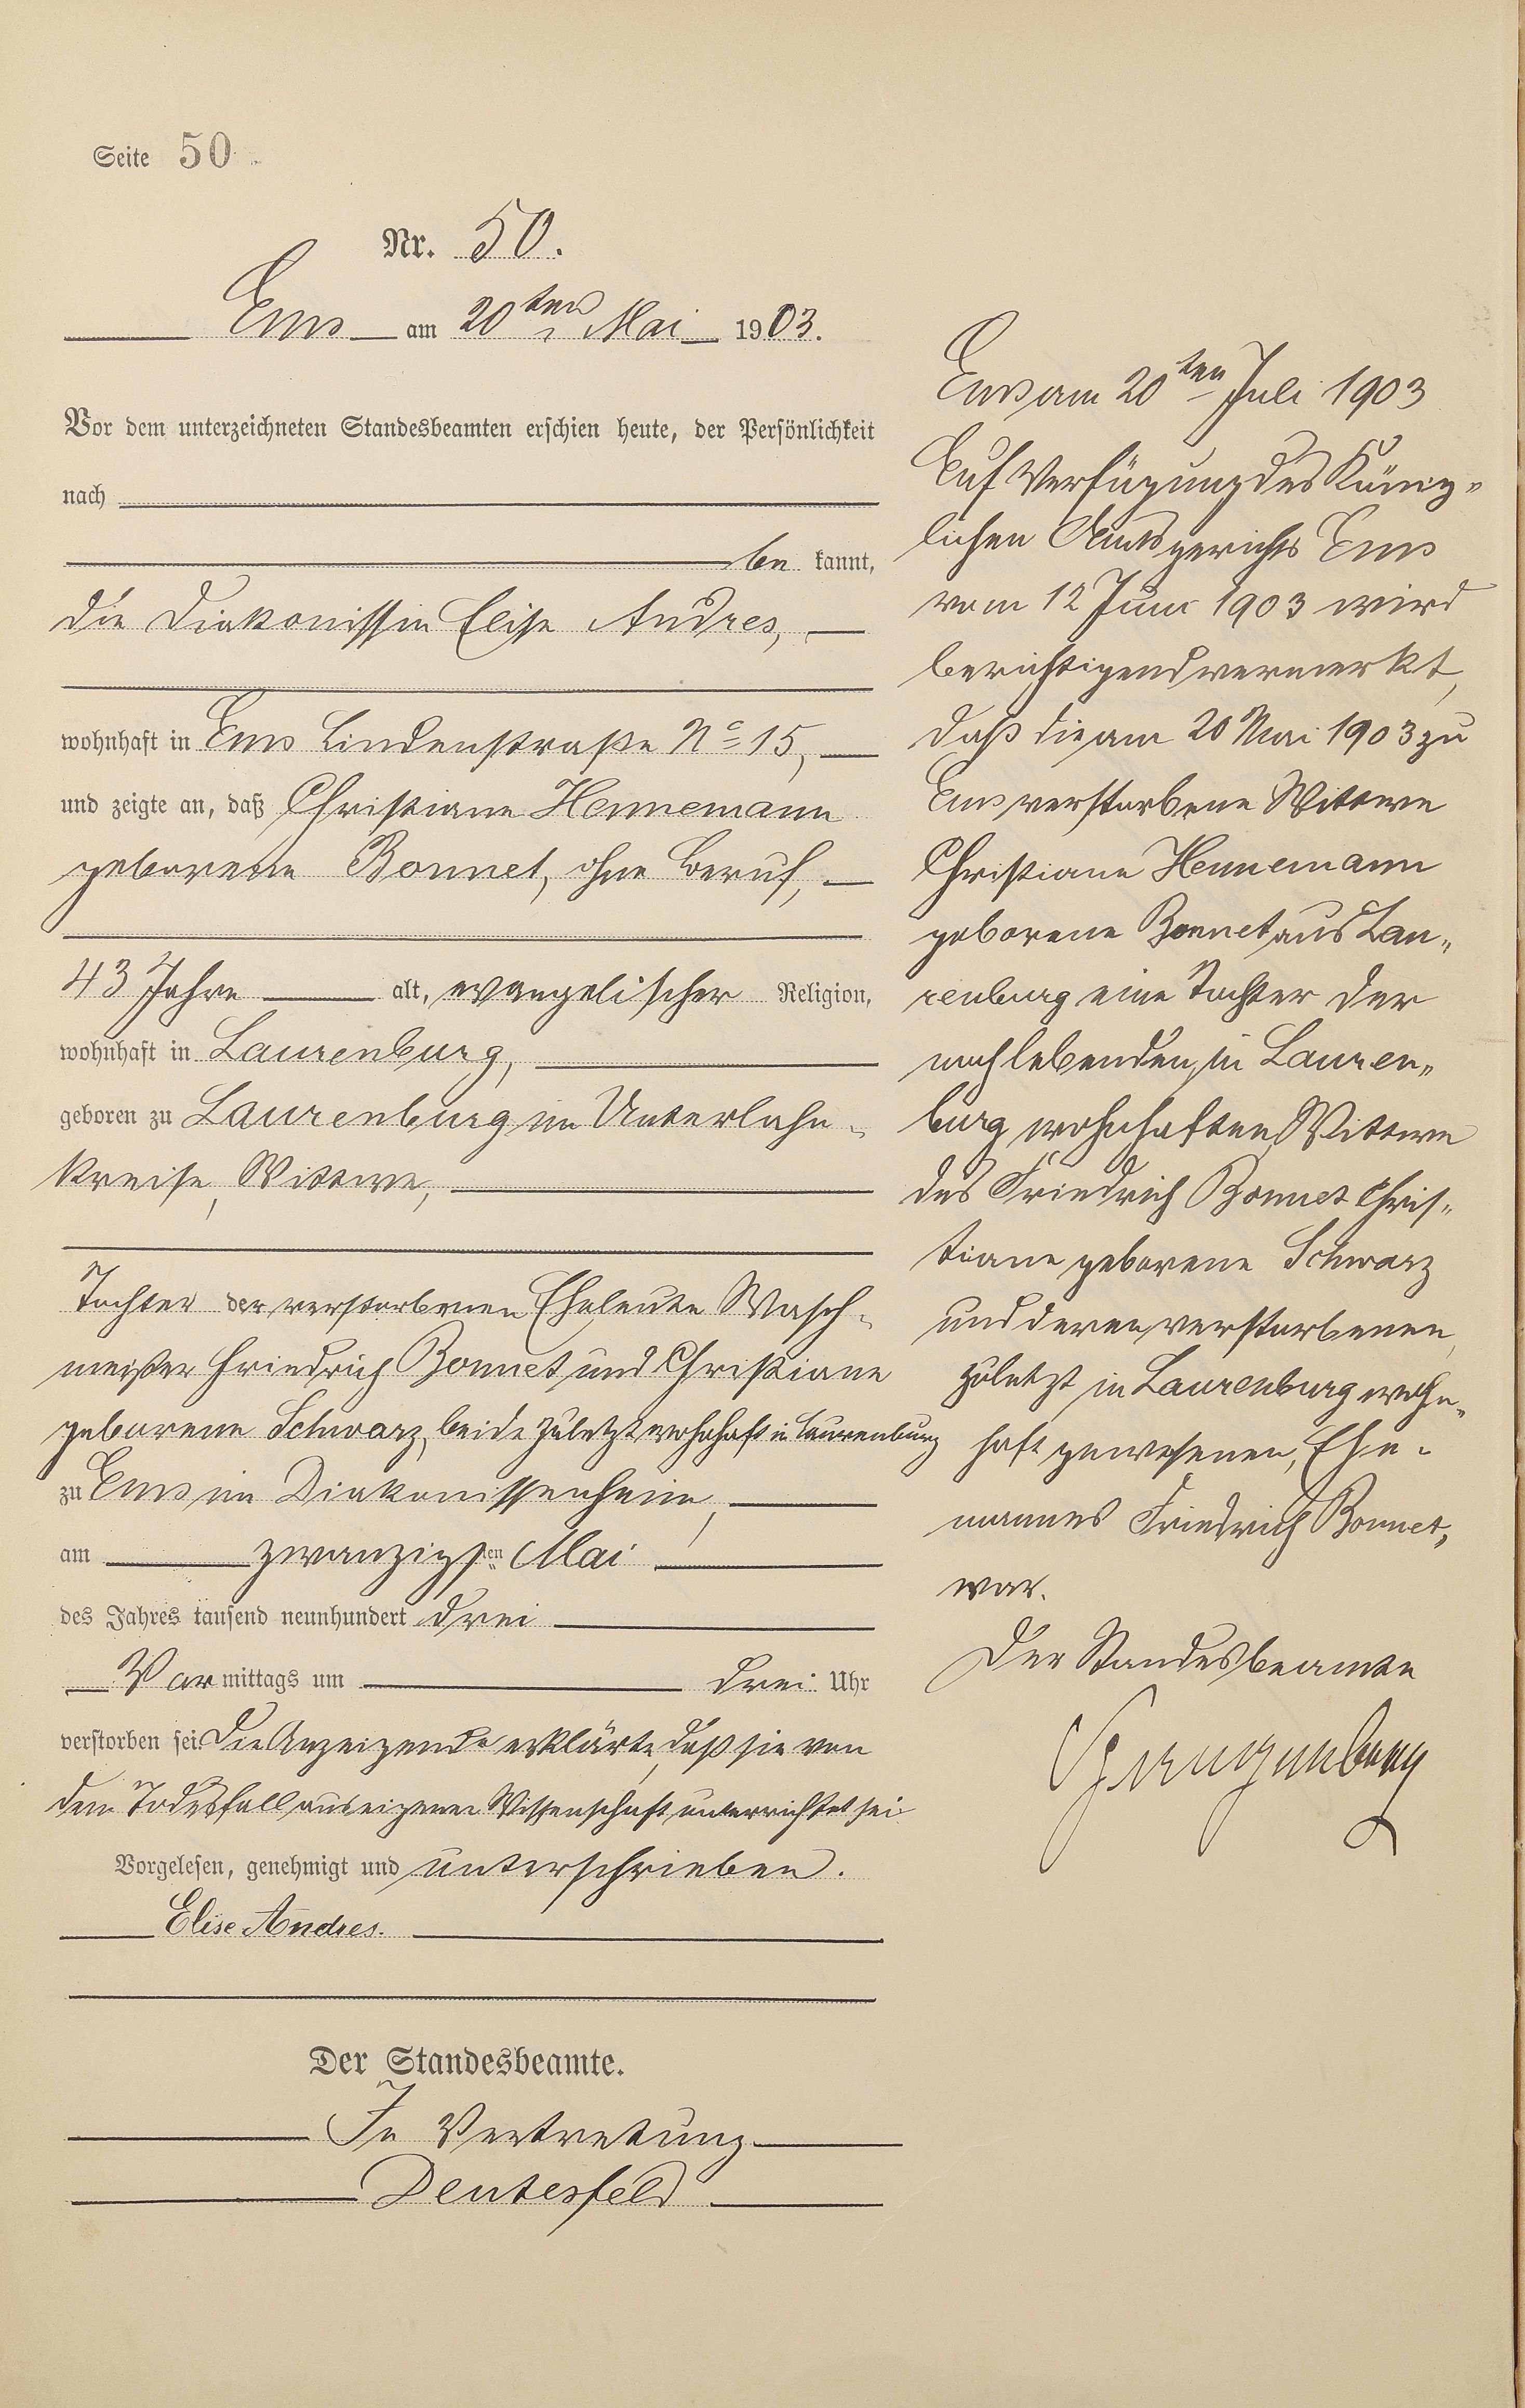 Seite 50
Nr. 50.
Ems am 20ten Mai 1903.
Vor dem unterzeichneten Standesbeamten erschien heute, der Persönlichkeit
nach
be kannt,
die Diakonissin Elise Andres,
wohnhaft in Ems Lindenstraße No 15,
und zeigte an, daß Christiane Hennemann
geborene Bonnet, ohne Beruf,
43 Jahre alt, evangelischer Religion,
wohnhaft in Laurenburg,
geboren zu Laurenburg im Unterlahn-
kreise, Wittwe,
Tochter der verstorbenen Eheleute Wasch-
meister Friedrich Bonnet und Christiane
geborene Schwarz, beide zuletzt wohnhaft in Laurenburg
zu Ems im Diakonissenheim,
am zwanzigsten Mai
des Jahres tausend neunhundert drei
Vor mittags um drei Uhr
verstorben sei. Die Anzeigende erklärte, daß sie von
dem Todesfall aus eigener Wissenschaft unterrichtet sei
Vorgelesen, genehmigt und unterschrieben.
Elise Andres.
Der Standesbeamte.
In Vertretung
Deutesfeld
Ems am 20ten Juli 1903
Auf Verfügung des König-
lichen Amtsgerichts Ems
vom 12 Juni 1903 wird
berichtigend vermerkt,
daß die am 20 Mai 1903 zu
Ems verstorbene Wittwe
Christiane Hennemann
geborene Bonnet aus Lau-
renburg eine Tochter der
noch lebenden, in Lauren-
burg wohnhaften Wittwe
des Friedrich Bonnet Chris-
tiane geborene Schwarz
und deren verstorbenen,
zuletzt in Laurenburg wohn-
haft gewesenen, Ehe-
mannes Friedrich Bonnet,
war.
Der Standesbeamte